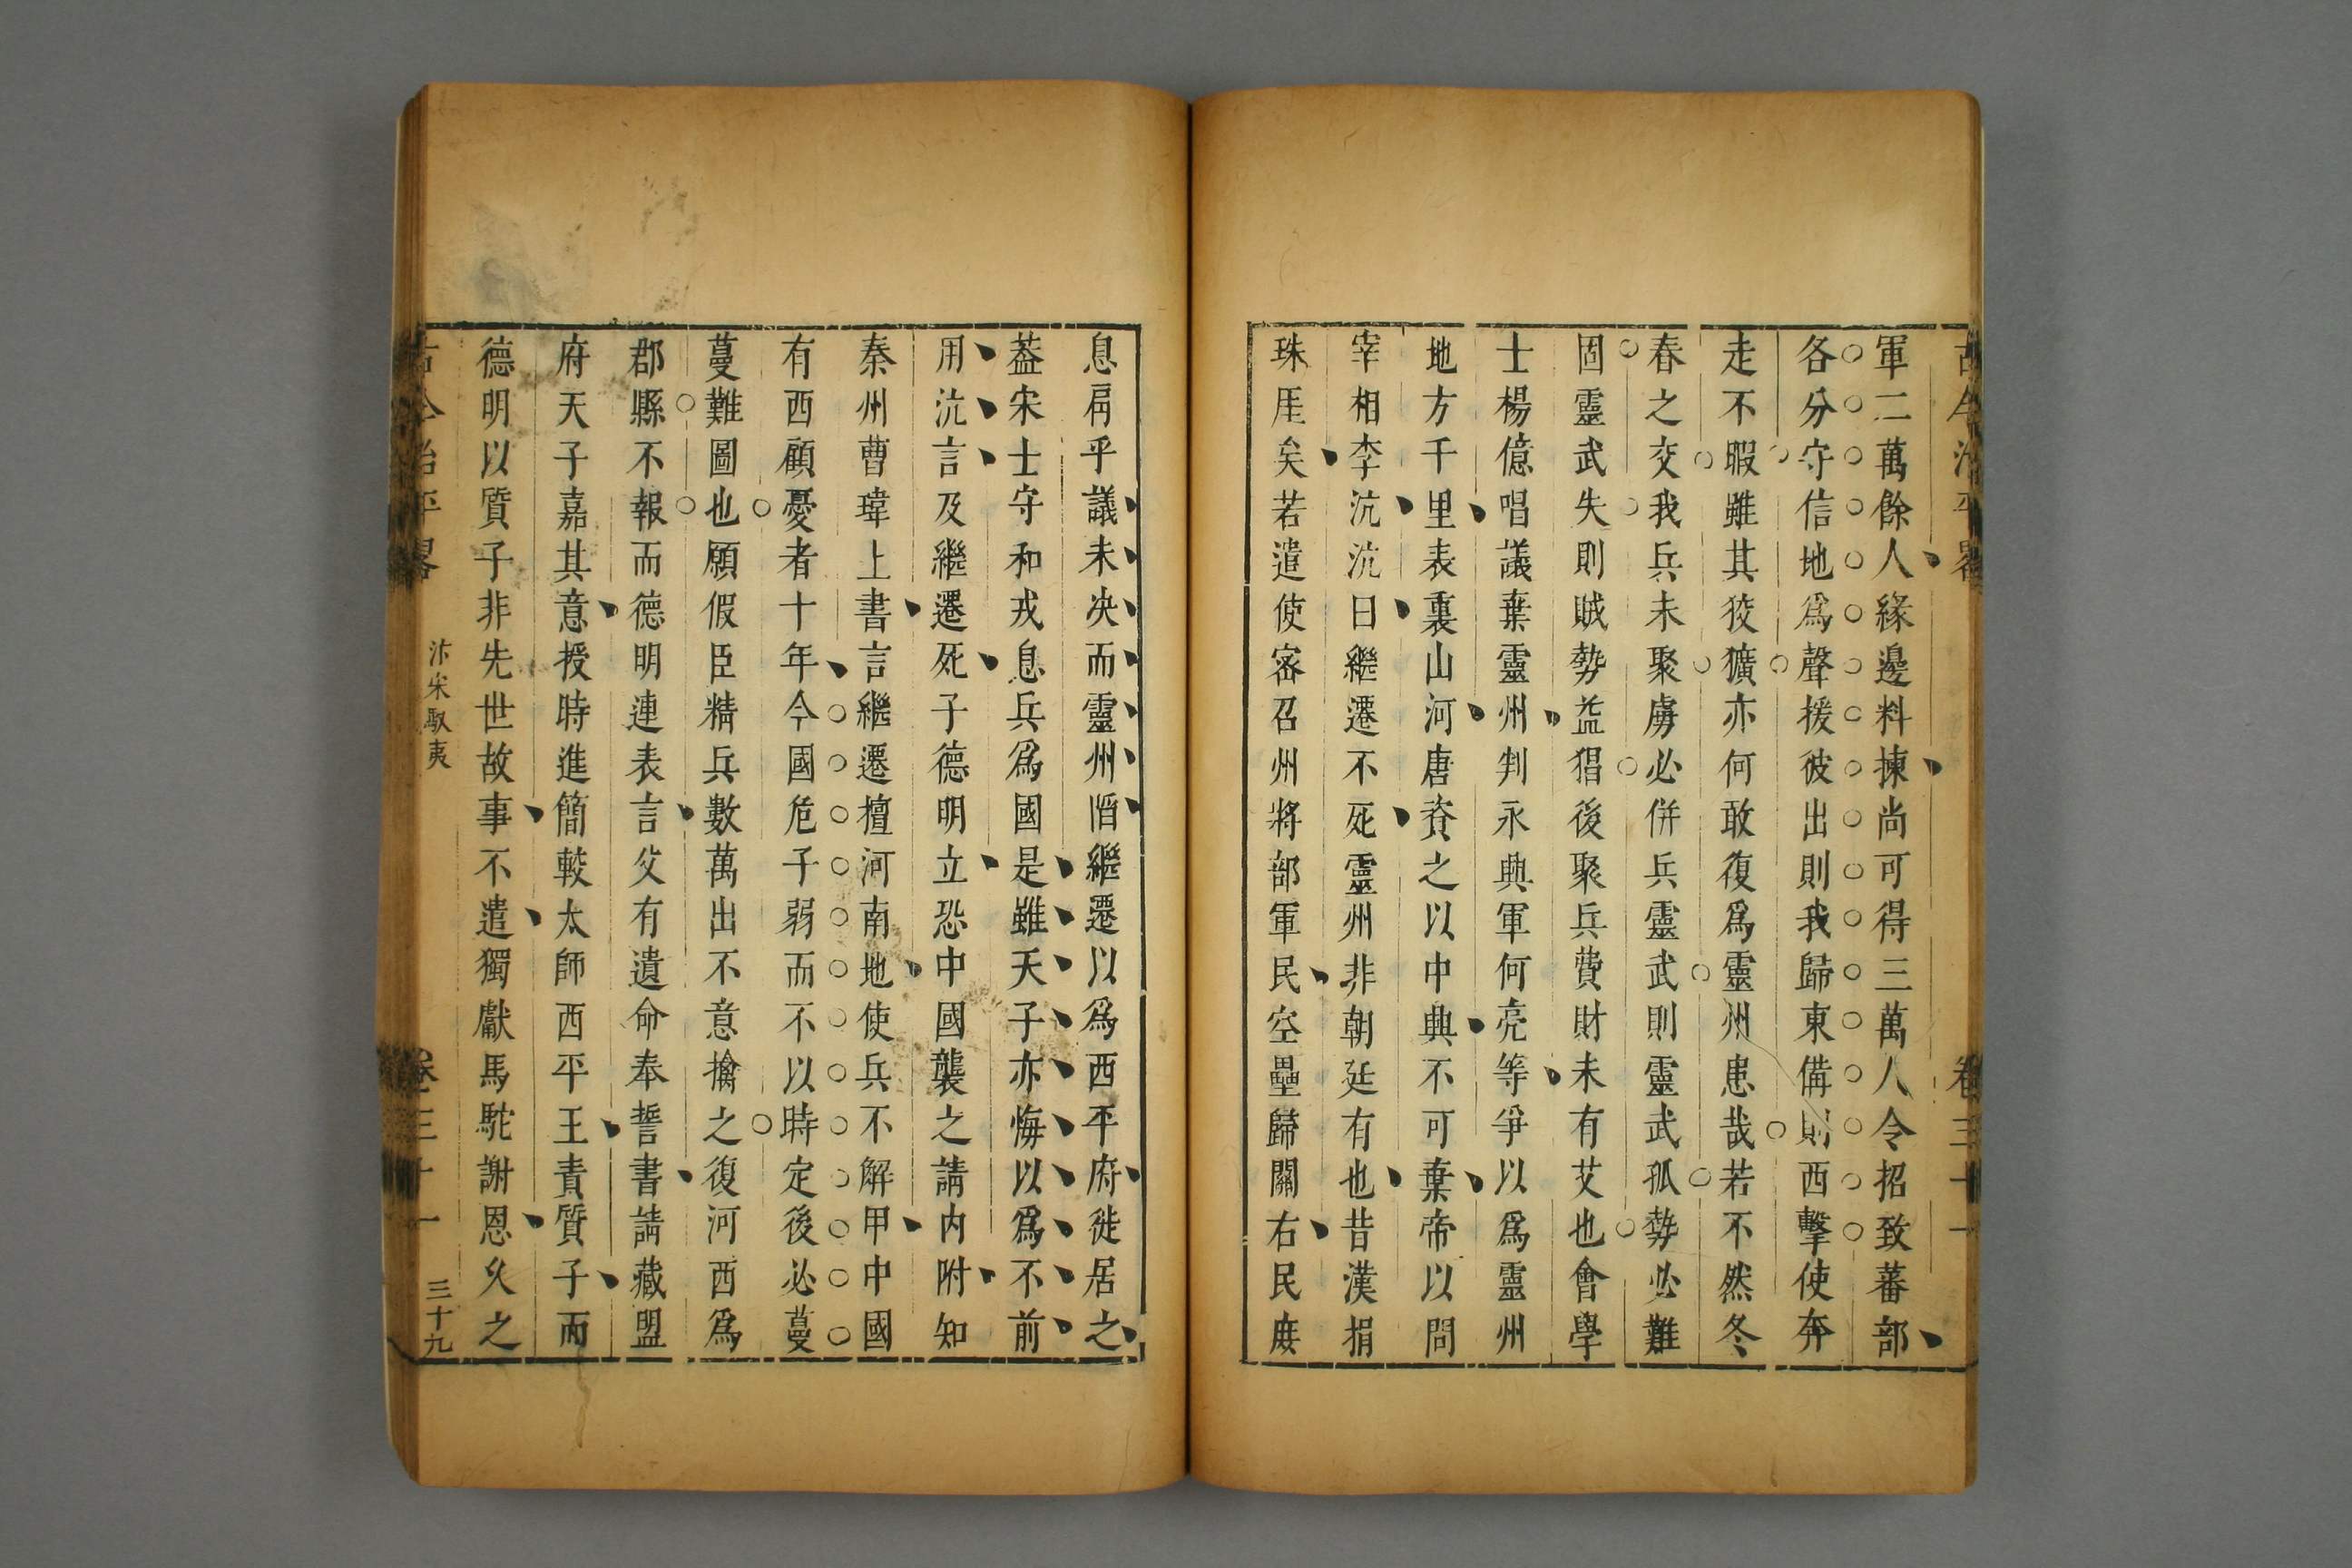 古今治平畧 卷三十一
軍二萬餘人緣邊料揀尚可得三萬人令招致蕃部
各分守信地爲聲援彼出則我歸東備則西擊使奔
走不暇雖其狡獷亦何敢復爲靈州患哉若不然冬
春之交我兵未聚虜必併兵靈武則靈武孤勢必難
固靈武失則賊勢益猖後聚兵費財未有艾也會學
士楊億唱議棄靈州判永興軍何亮等爭以爲靈州
地方千里表裏山河唐資之以中興不可棄帝以問
宰相李沆沆曰繼遷不死靈州非朝廷有也昔漢捐
珠厓矣若遣使密召州將部軍民空壘歸關右民庶
息肩乎議未决而靈州㗖繼遷以爲西平府徙居之
葢宋士守和戎息兵爲國是雖天子亦悔以爲不前
用沆言及繼遷死子德明立恐中國襲之請内附知
秦州曹瑋上書言繼遷擅河南地使兵不解甲中國
有西顧憂者十年今國危子弱而不以時定後必蔓
蔓難圖也願假臣精兵數萬出不意擒之復河西爲
郡縣不報而德明連表言父有遺命奉誓書請藏盟
府天子嘉其意授時進簡較太師西平王責質子而
德明以質子非先世故事不遣獨獻馬駝謝恩久之
古今治平畧 汴宋馭夷 卷三十一 三十九